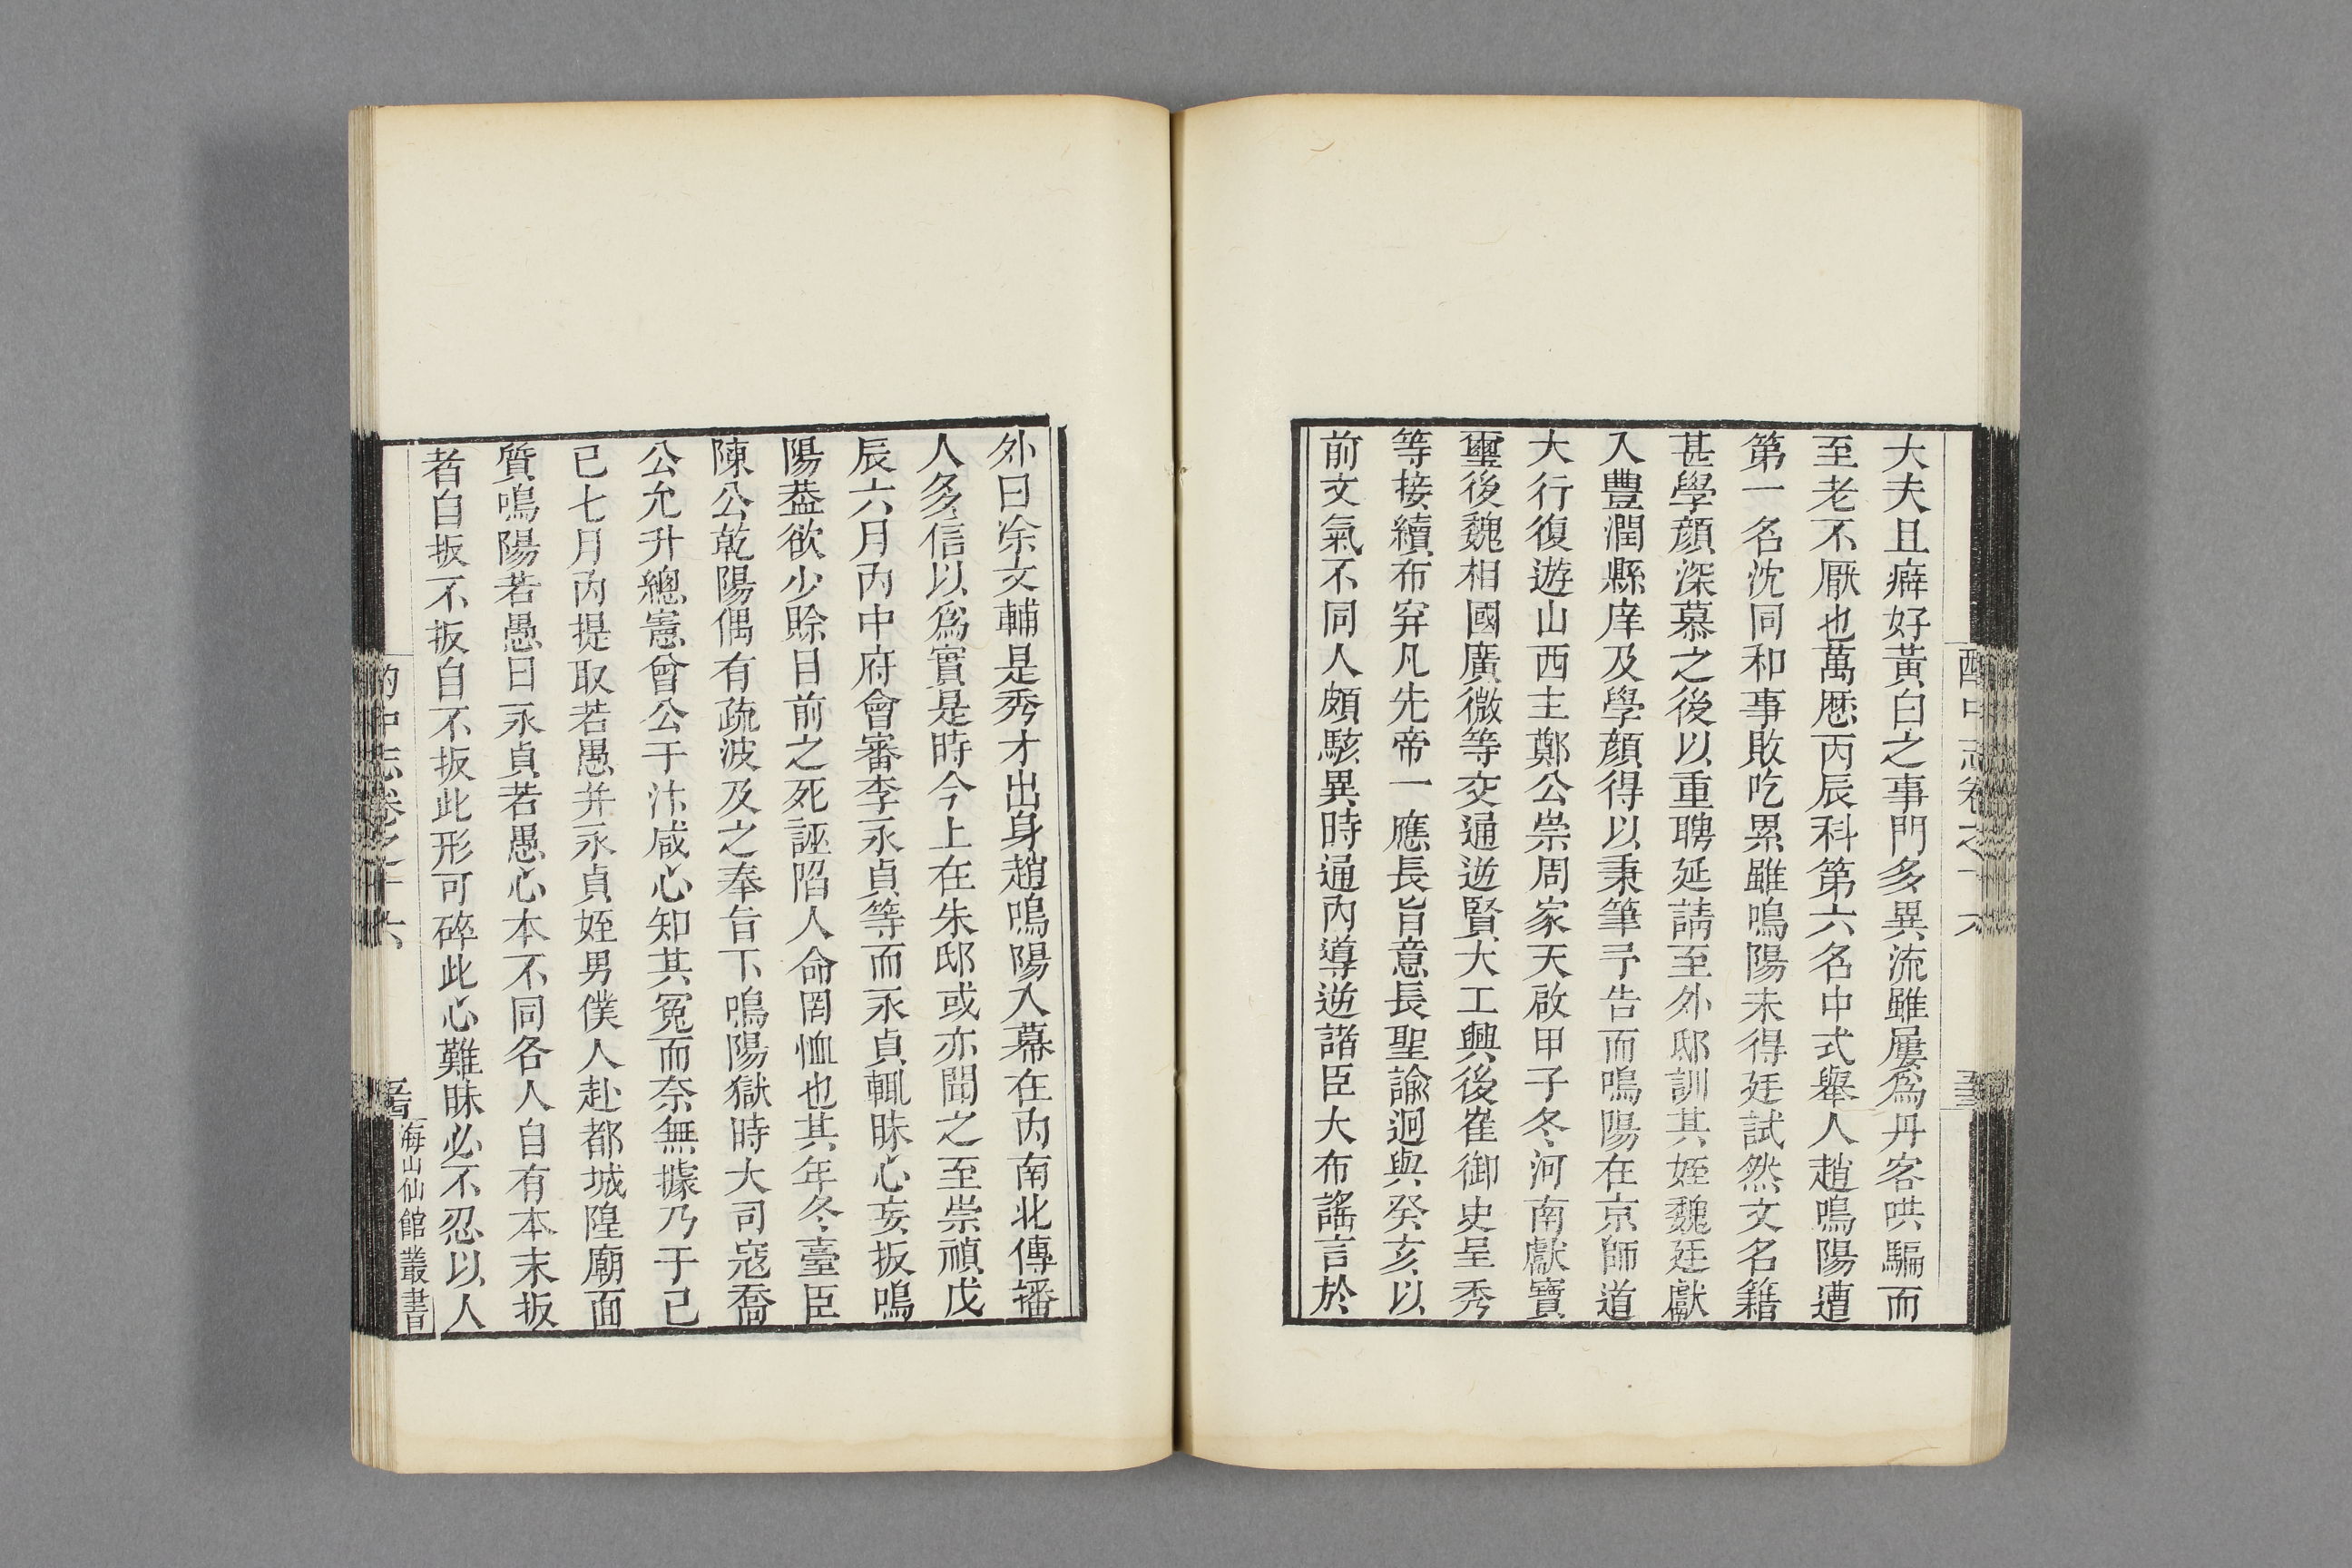 大夫且癖好黃白之事門多異流雖屢爲丹客哄騙而
至老不厭也萬厯丙辰科第六名中式舉人趙鳴陽遭
第一名沈同和事敗吃累雖鳴陽未得廷試然文名籍
甚學顔深慕之後以重聘延請至外邸訓其姪魏廷獻
入豐潤縣庠及學顔得以秉筆予告而鳴陽在京師道
大行復遊山西主鄭公崇周家天啟甲子冬河南獻寶
璽後魏相國廣微等交通逆賢大工興後崔御史呈秀
等接續布穽凡先帝一應長旨意長聖諭迥與癸亥以
前文氣不同人頗駭異時通內導逆諸臣大布謠言於
外曰涂文輔是秀才出身趙鳴陽入幕在內南北傳播
人多信以爲實是時今上在朱邸或亦聞之至崇禎戊
辰六月內中府會審李永貞等而永貞輒昧心妄扳鳴
陽葢欲少賒目前之死誣陷人命罔恤也其年冬臺臣
陳公乾陽偶有疏波及之奉旨下鳴陽獄時大司寇喬
公允升總憲曾公于汴咸心知其冤而奈無據乃于己
巳七月內提取若愚并永貞姪男僕人赴都城隍廟面
質鳴陽若愚曰永貞若愚心本不同各人自有本末扳
者自扳不扳自不扳此形可碎此心難昧必不忍以人
酌中志卷之十六
海山仙館叢書